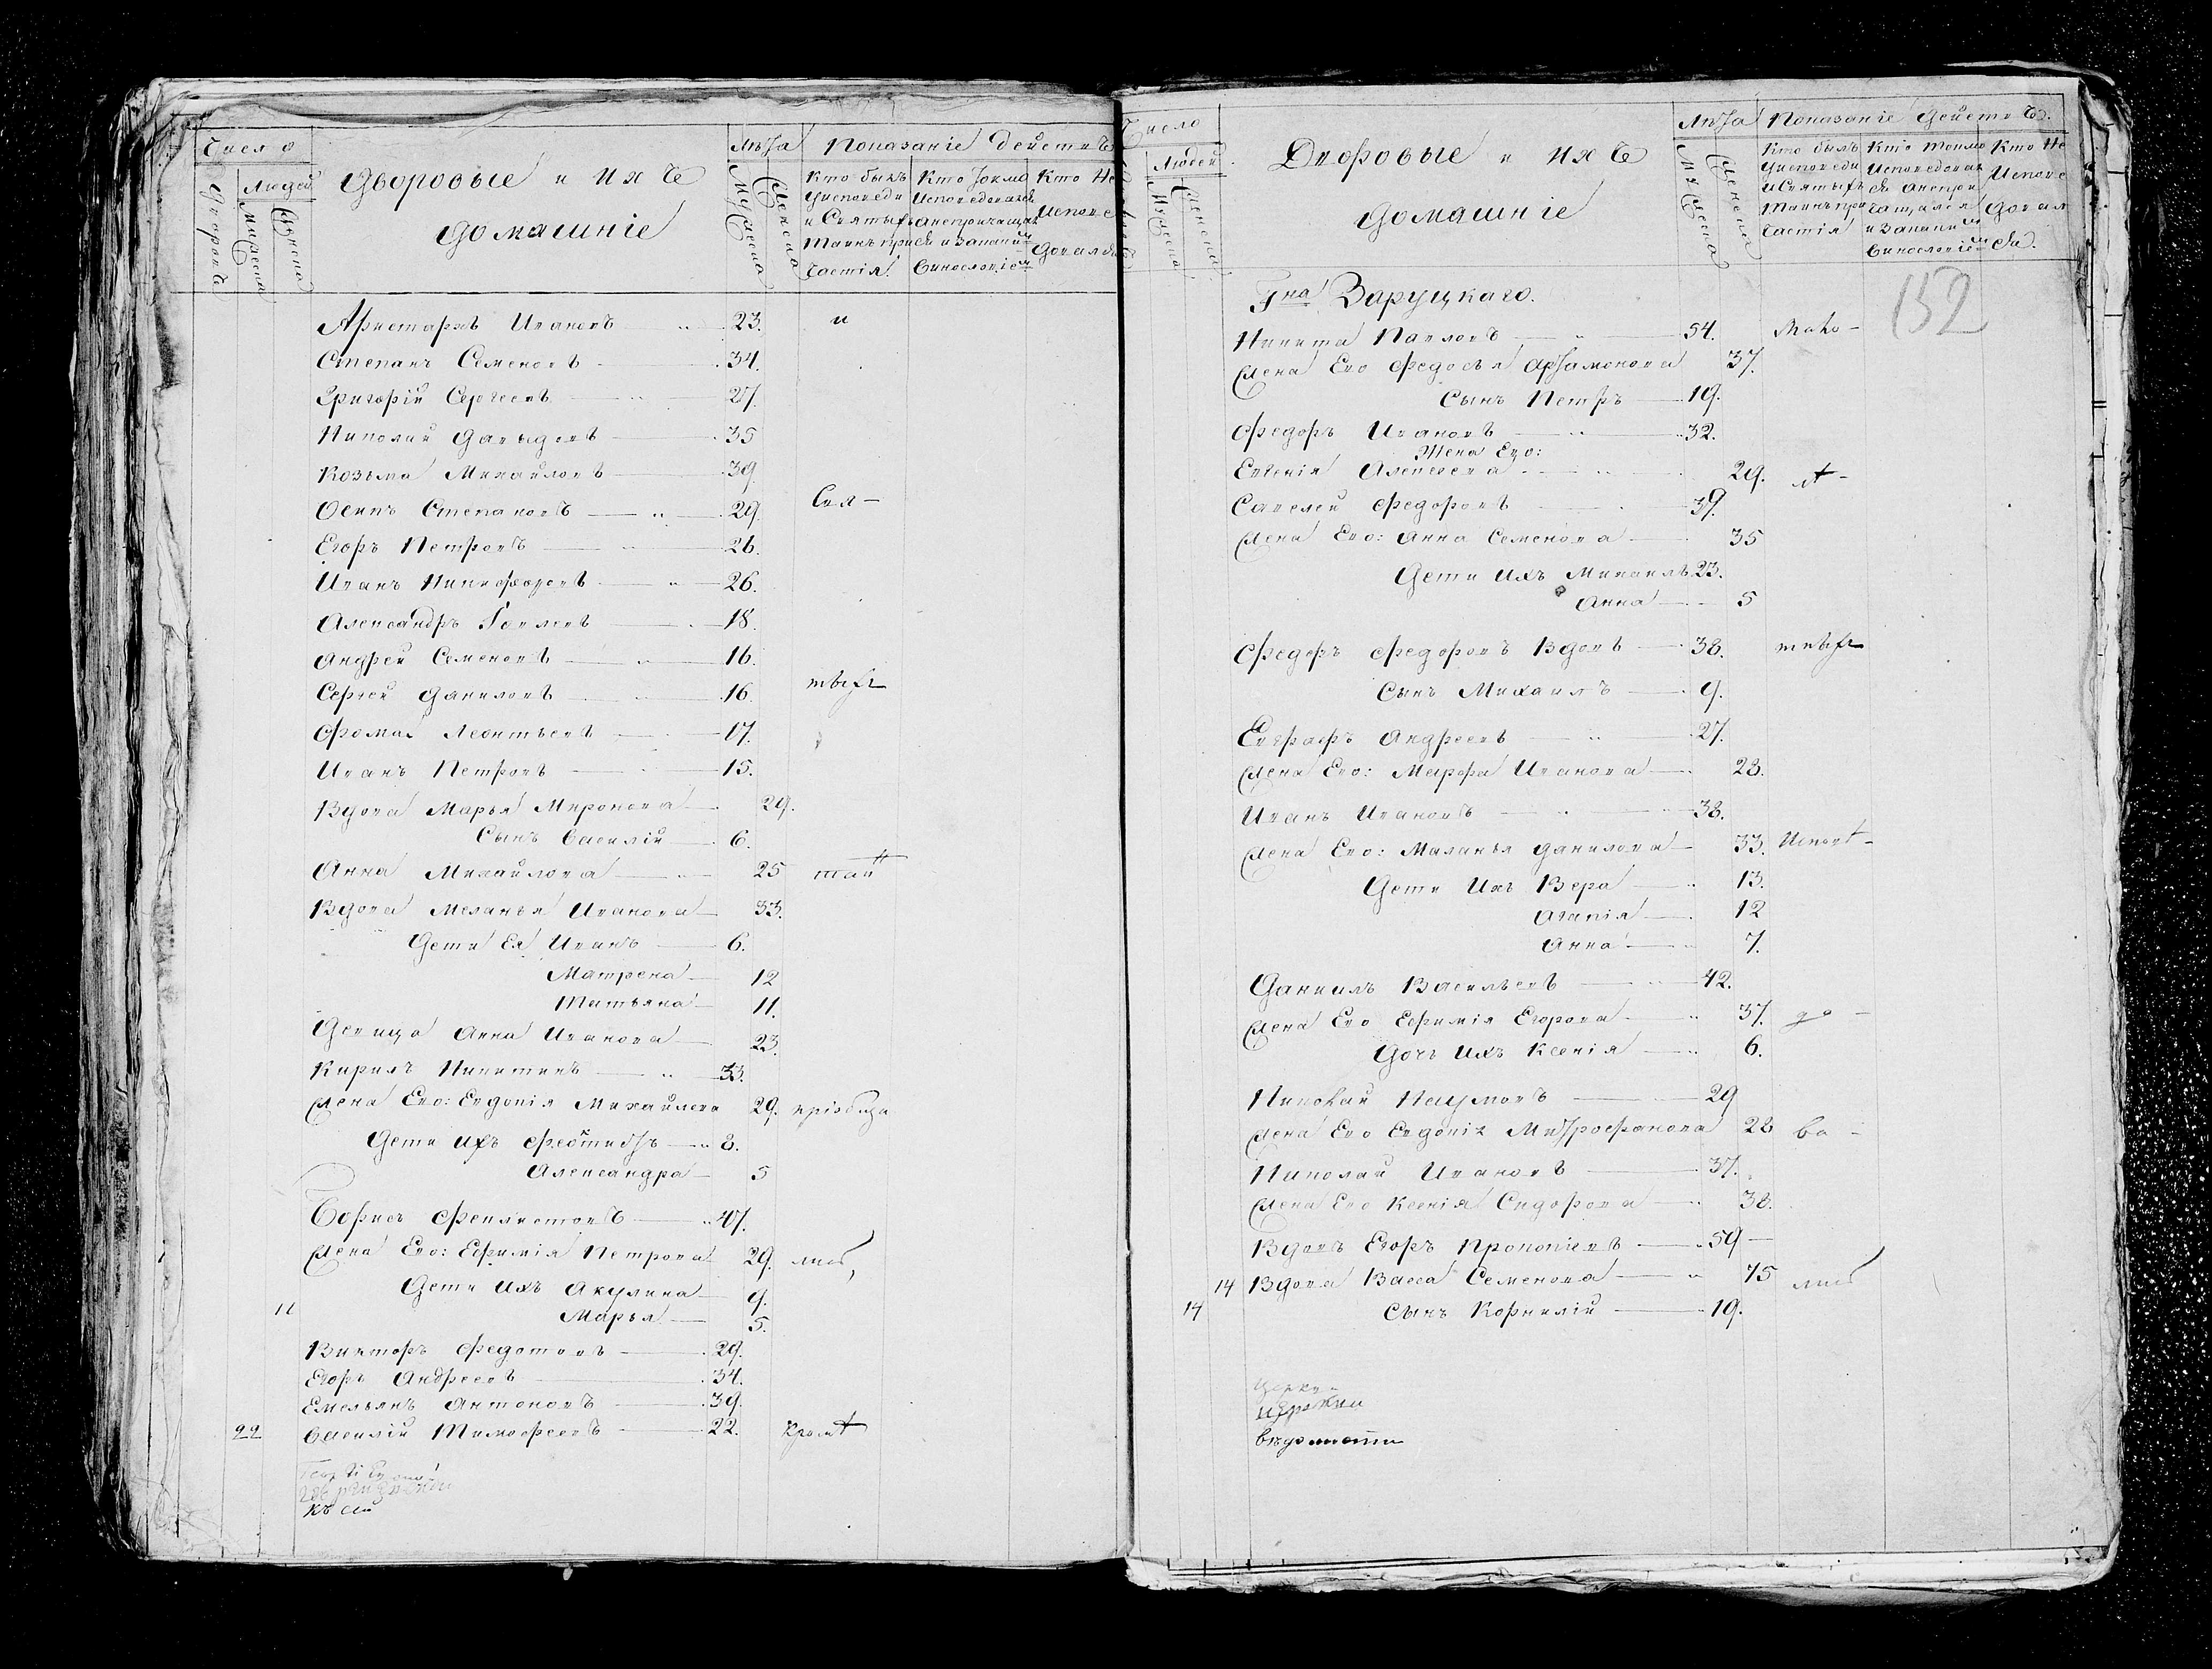 Число
Дворовъ
Людей
Мужеска
Женска
Дворовые и Ихъ
Домашніе
Лѣта
Мужеска
Женска
Показаніе Действъ
Кто былъ
Уисповеди
и Святыхъ
Таинъ при
Частія.
Кто Токмо
Исповедался
а непричащал
ся и закаким
Винословіем
Кто Не
Исповѣ
довался
Аристархъ Ивановъ 23. и
Степанъ Семеновъ 34.
Григорій Сергеевъ 27.
Николай Давыдовъ 35
Козьма Михайловъ 39.
Осипъ Степановъ 29. Свя-
Егоръ Петровъ 26.
Иванъ Никифоровъ 26.
Александръ 18.
Андрей Семеновъ 16.
Сергей Даниловъ 16. тыхъ
Фома Леонтьевъ 17.
Иванъ Петровъ 15.
Вдова Марья Миронова 29.
Сынъ Василій 6.
Анна Михайлова 25 таи
Вдова Меланья Иванова 33.
Дети Ея Иванъ 6.
Матрена 12
Татьяна 11.
Девица Анна Иванова 23.
Кирилъ Никитинъ 33.
Жена Его: Евдокія Михайлова 29.
Дети Ихъ Феоктистъ 8.
Александра 5
Борисъ Феклистовъ 47.
Жена Его: Ефимія Петрова 29.
Дети Ихъ Акулина 9.
11 Марья 5.
Викторъ Федотовъ 29.
Егоръ Андреевъ 34.
Емельянъ Антоновъ 39.
22 Василій Тимофеевъ 22.
къ сей
Число
Людей
Мужеска
Женска
Дворовые и Ихъ
Домашніе
Лѣта
Мужеска
Женска
Показаніе Действъ.
Кто былъ
Уисповеди
и Святыхъ
Таинъ при
Частія
Кто токмо
Исповедовал
ся а непри
чащался
и закаким
Винословіем
Кто Не
Испове
довал
ся.
152
Гна Заруцкаго.
Никита Павловъ 54.
Жена Его Федосья Артамонова 37.
Сынъ Петръ 19.
Федоръ Ивановъ 32.
Жена Его:
Евгенія Алексеева 29.
Савелей Федоровъ 39.
Жена Его: Анна Семенова 35
Дети Ихъ Михаилъ 23.
Анна 5
Федоръ Федоровъ Вдовъ 38.
Сынъ Михаилъ 9.
Евграфъ Андреевъ 27.
Жена Его: Марфа Иванова 28.
Иванъ Ивановъ 38.
Жена Его: Маланья Данилова 33.
Дети Ихъ Вера 13.
Агапія 12
Анна 7.
Даниилъ Васильевъ 42.
Жена Его Ефимія Егорова 37. до -
Дочь Ихъ Ксенія 6.
Николай Наумовъ 29
Жена Его Евдокія Митрофанова 28 ва -
Николай Ивановъ 37.
Жена Его Ксенія Сидорова 38.
Вдовъ Егоръ Прокопіевъ 59
14 Вдова Васса Семенова 75
14 Сынъ Корнилій 19.
вѣдомости